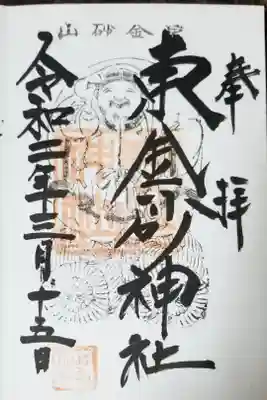 東金砂山
奉拝
東金砂神社
令和二年十二月十五日